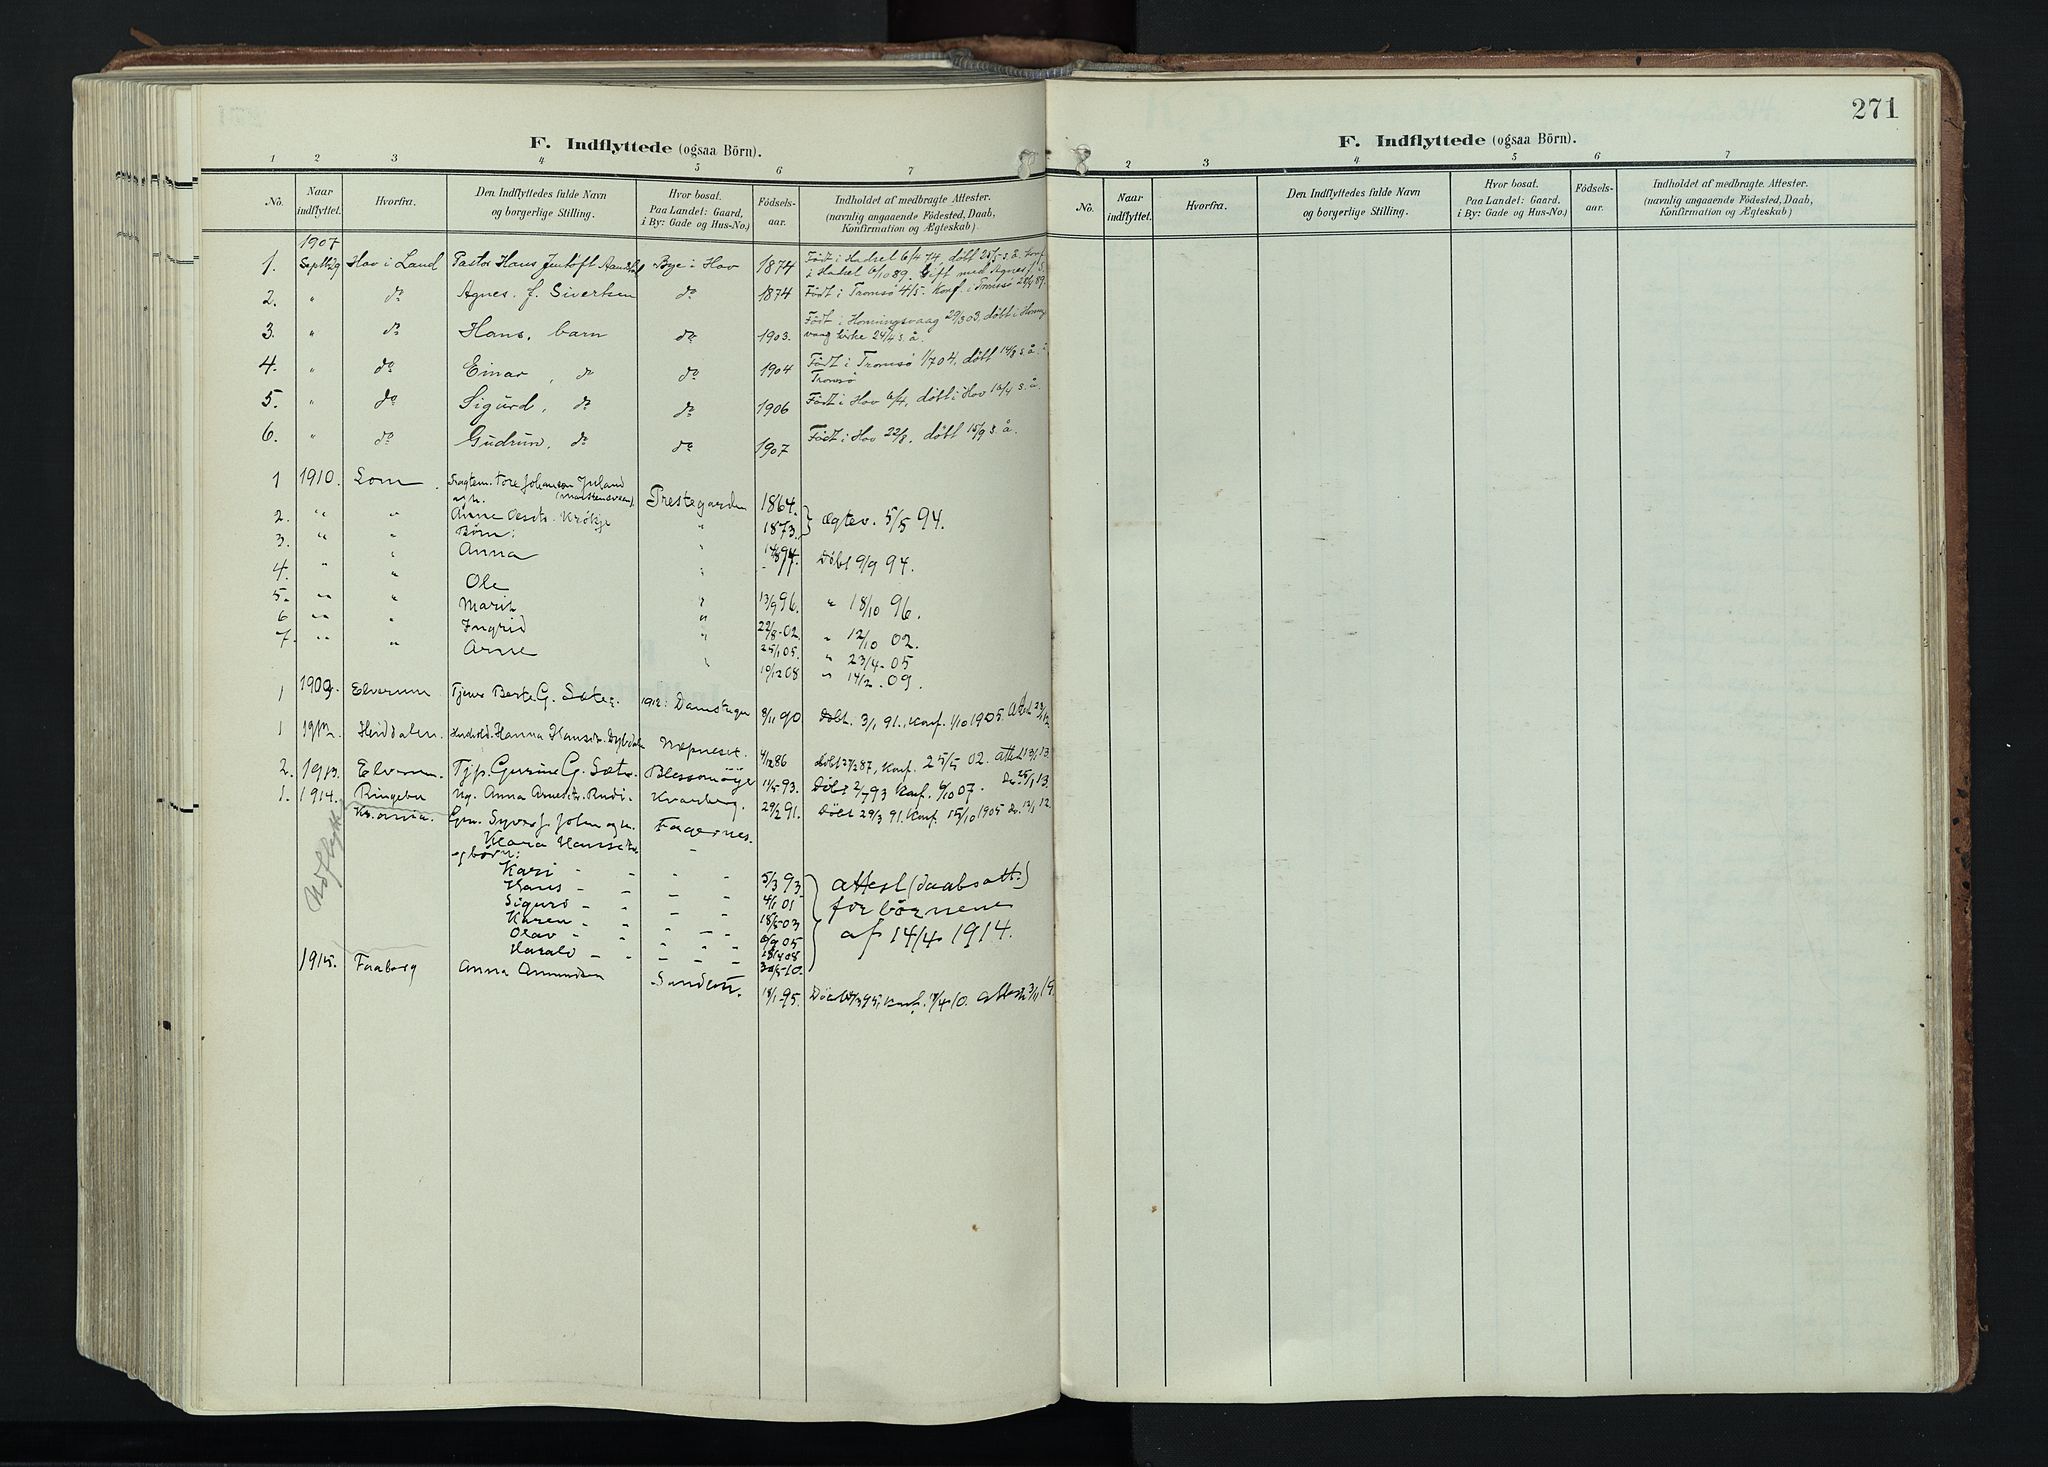 F. Indflyttede (ogsaa Börn).
1 2 3 4 5 6 7
No. | Naar indflyttet. | Hvorfra. | Den Indflyttedes fulde Navn og borgerlige Stilling. | Hvor bosat. Paa Landet: Gaard, i By: Gade og Hus-No.) | Födsels-aar. | Indholdet af medbragte Attester. (navnlig angaaende Födested, Daab, Konfirmation og Ægteskab)
1907
1. Hov i Land Pastor Hans Jentoft Bye i Hov 1874 Født i Hadsel 6/4 74, døbt 25/5 s. å. Konf.
i Hadsel 6/10 89. Gift med Agnes f. S.
2. " do Agnes. f. Sivertsen do 1874 Født i Tromsø 4/5. Konf. i Tromsø 89.
3. " do Hans, barn do 1903. Født i Honningsvaag 29/3 03, døbt i Honnings-
vaag kirke 24/4 s. å.
4. " do Einar, do do 1904 Født i Tromsø 1/7 04, døbt 14/8 s. å. i
Tromsø
5. " do Sigurd, do do 1906 Født i Hov 6/4, døbt i Hov 16/4 s. å.
6. " do Gudrun, do do 1907 Født i Hov 22/8, døbt 15/9 s. å.
1 1910. Lom. Tore Johansen Prestegarden 1864.
2. " " Anne " 1873. Ægtev. 5/5 94.
Børn:
3. " " Anna " Døbt 9/9 94.
4. " " Ole " 13/9 96. " 18/10 96.
5. " " Marit " 22/8-02. " 12/10 02.
6 " " Ingrid " 25/1 05. " 23/4-05
7. " " Arne " 19/12 08 " 14/2. 09.
1 1909. Elverum Berte G. Sæter 1912: 8/11 90 Døbt. 3/1 91., Konf. 1/10 1905.
1 Heiddalen. Hanna Hansdtr. Næpneset. 4/12 86 døbt 27/2 87, Konf. 25/5 02. attest 13/1 13.
2. 1913. Elverum. G. Sæter. 14/5 93. Døbt 2/7 93 Konf. 6/10 07.
1. 1914. Ringebu Ug. Anna Arnesdtr. Rudi. Kvarberg. 29/2 91. Døbt 29/3 91. Konf. 15/10 1905
Kr.ania. Syver J. Fagernes.
Klara
og börn:
Kari - - - - 5/3 93
Hans - - - - 4/1 01
Sigurd - - - - 18/5-03
Karen - - - -
Olav - - - - -
Harald - - - - -
attest (daabsatt.)
for börnene
af 14/4 1914.
1915. Faaberg Anna Amundsen 18/1 95.
271
F. Indflyttede (ogsaa Börn).
2 3 4 5 6 7
No. | Naar indflyttet. | Hvorfra. | Den Indflyttedes fulde Navn og borgerlige Stilling. | Hvor bosat. Paa Landet: Gaard, i By: Gade og Hus-No.) | Födsels-aar. | Indholdet af medbragte Attester. (navnlig angaaende Födested, Daab, Konfirmation og Ægteskab)